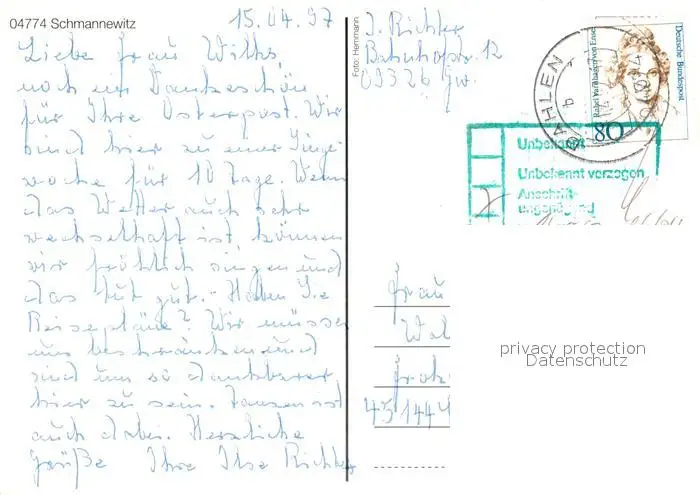 04774 Schmannewitz
15.04.97
Liebe Frau Wilks
noch ein Dankeschön
für Ihre Osterpost. Wir
sind hier zu einer Singe
woche für 10 Tage. Wenn
das Wetter auch sehr
wechselhaft ist, können
wir fröhlich singen und
das tut gut. - Haben Sie
Reisepläne? Wir müssen
uns beschränken und
sind um so dankbarer
hier zu sein.
auch dabei. Herzliche
Grüße Ihre Ilse Richter
Foto: Herrmann
I. Richter
Bahnhofstr. 12
09326 Gw.
DAHLEN
Deutsche Bundespost
Rahel Varnhagen von Ense
80
Unbekannt
Unbekannt verzogen
Anschrift
ungenügend
Frau
Wal
45144
privacy protection
Datenschutz